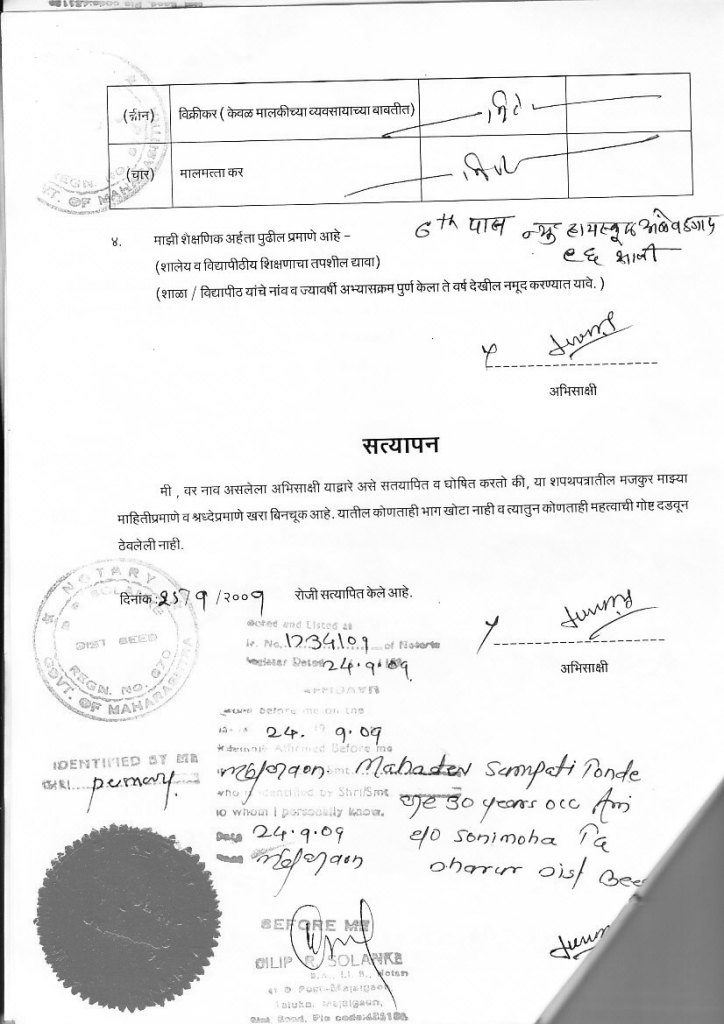 (तीन) विक्रीकर ( केवळ मालकीच्या व्यवसायाच्या बाबतीत) निरंक
(चार) मालमत्ता कर निरंक
४. माझी शैक्षणिक अर्हता पुढील प्रमाणे आहे – 6th पास न्यु हायस्कूल
(शालेय व विद्यापीठीय शिक्षणाचा तपशील द्यावा)
(शाळा / विद्यापीठ यांचे नांव व ज्यावर्षी अभ्यासक्रम पुर्ण केला ते वर्ष देखील नमूद करण्यात यावे. )
अभिसाक्षी
सत्यापन
मी , वर नाव असलेला अभिसाक्षी याद्वारे असे सतयापित व घोषित करतो की, या शपथपत्रातील मजकुर माझ्या
माहितीप्रमाणे व श्रध्देप्रमाणे खरा बिनचूक आहे. यातील कोणताही भाग खोटा नाही व त्यातुन कोणताही महत्वाची गोष्ट दडवून
ठेवलेली नाही.
NOTARY
DIST BEED
REGN. NO. 670
GOVT. OF MAHARASHTRA
दिनांक : /२००९ रोजी सत्यापित केले आहे.
Noted and Listed at
Sr. No. 1234/09 of Notaris
Register Dated 24.9.09
अभिसाक्षी
AFFIDAVIT
before me on the
24. 9.09
Affirmed Before me
IDENTIFIED BY ME
SHRI.
Majalgaon Mahadev Sampati Tonde
who is identified by Shri/Smt. age 30 years occ Agri
to whom I personally know.
Date 24.9.09 r/o Sonimoha Tq
Majalgaon Dharur Dist Beed
BEFORE ME
DILIP R. SOLANKE
B.A., LL.B., Notary
Post-Majalgaon
Taluka. Majalgaon,
Dist. Beed, Pin code:431130